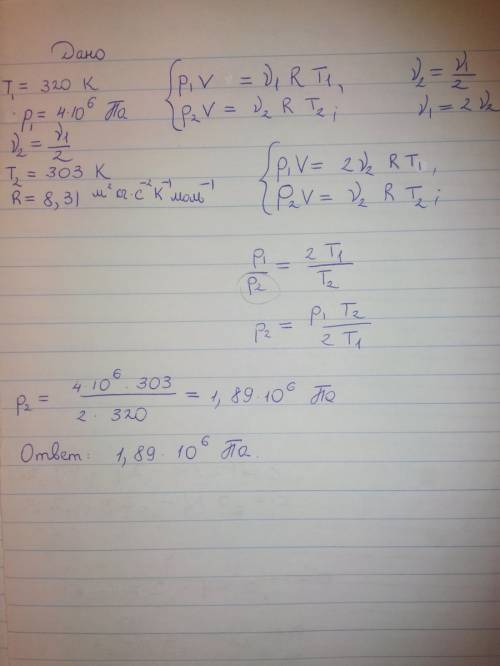 Дано
T₁ = 320 К
p₁ = 4·10⁶ Па
ν₂ = ν₁/2
T₂ = 303 К
R = 8,31 м² кг·с⁻² К⁻¹ моль⁻¹
{ p₁V = ν₁ R T₁,
p₂V = ν₂ R T₂;
ν₂ = ν₁/2
ν₁ = 2ν₂
{ p₁V = 2ν₂ R T₁,
p₂V = ν₂ R T₂;
p₁/p₂ = 2 T₁/T₂
p₂ = p₁ T₂/2 T₁
p₂ = 4·10⁶·303/2·320 = 1,89·10⁶ Па
Ответ: 1,89·10⁶ Па.